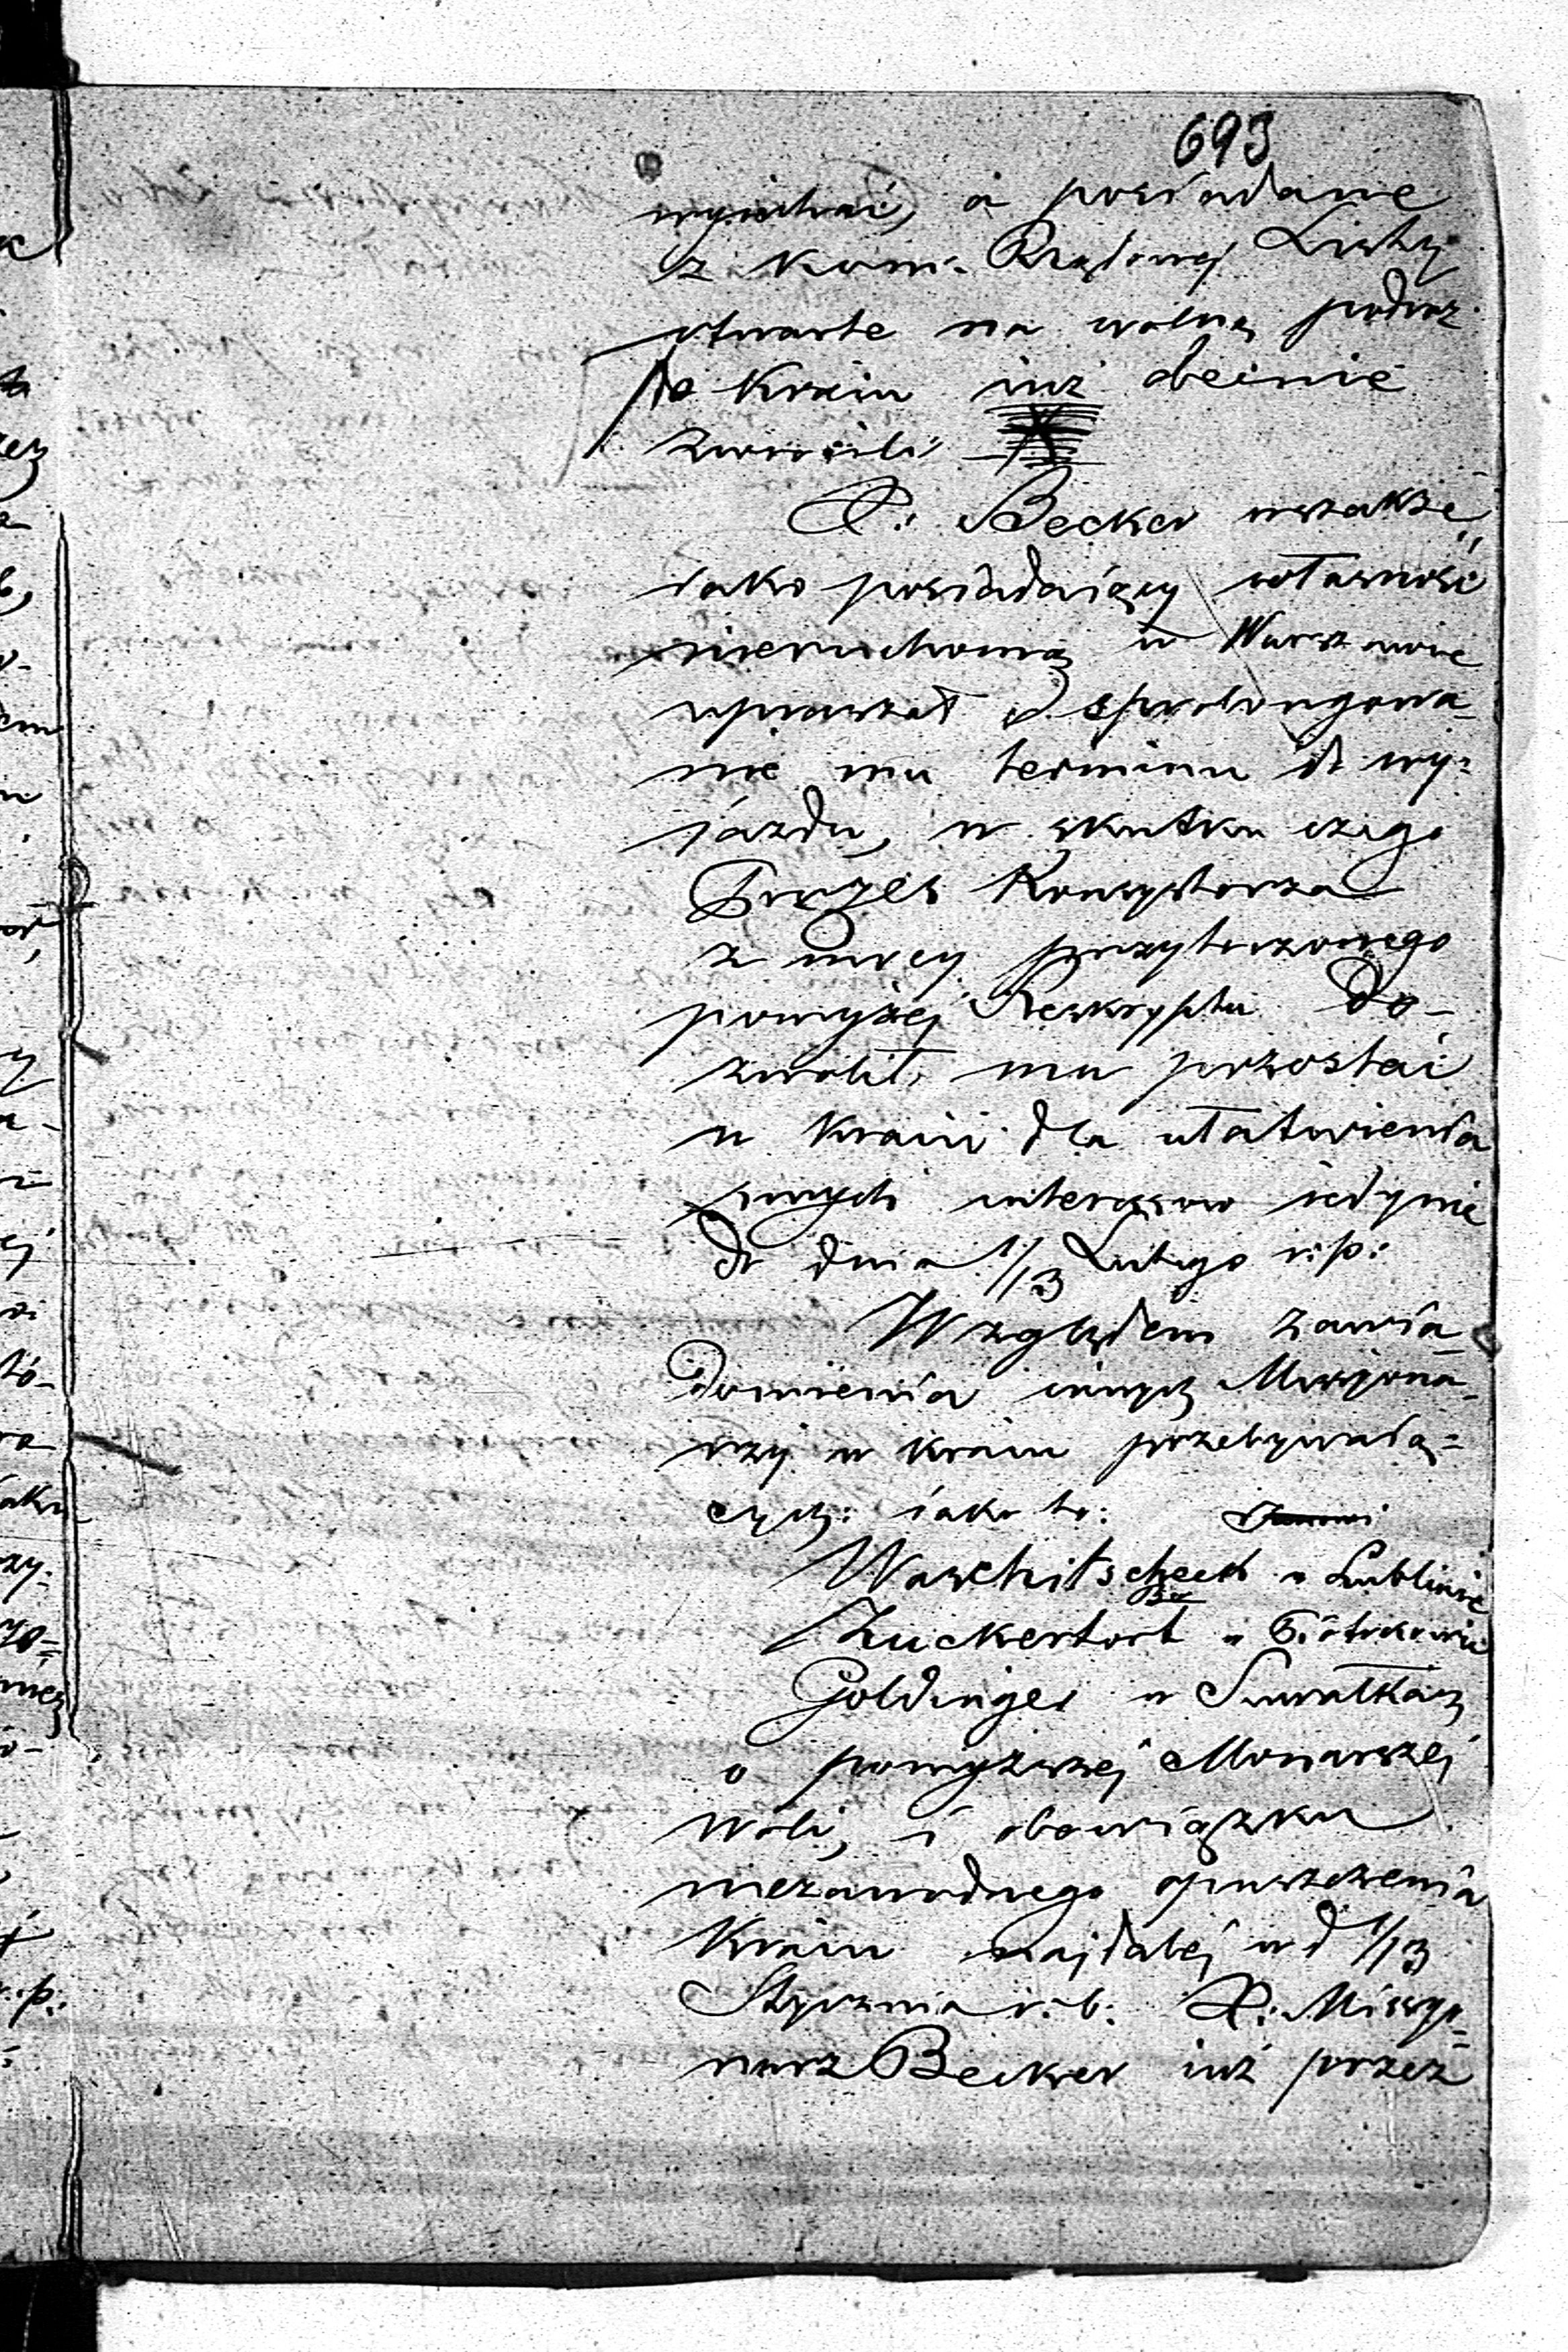 693
wyiechać, a posiadane
z Kom. Rządowej Listy
otwarte na wolną podróż
po Kraiu iuż obecnie
zwrócili
X: Becker wszakże,
iako posiadaiący własność
nieruchomą w Warszawie
upraszał o sprolongowa-
nie mu terminu do wy-
jazdu, w skutku czego
Prezes Konsystorza
z mocy przytoczonego
powyżej Reskryptu do-
zwolił mu pozostać
w Kraiu dla ułatwienia
swych interessow iedynie
do dnia 1/13 Lutego r: p:
Względem zawia-
domienia innych Missyona-
rzy w Kraiu przebywaią-
cych: iako to:
Waschitscheck w Lublinie
Zuckertort w Piotrkowie
Goldinger w Suwałkach
o powyższej Monarszej
woli, i obowiązku
niezawodnego opuszczenia
Kraiu najdalej w d 1/13
Stycznia r: b: X: Missyo-
narz Becker iuż przez